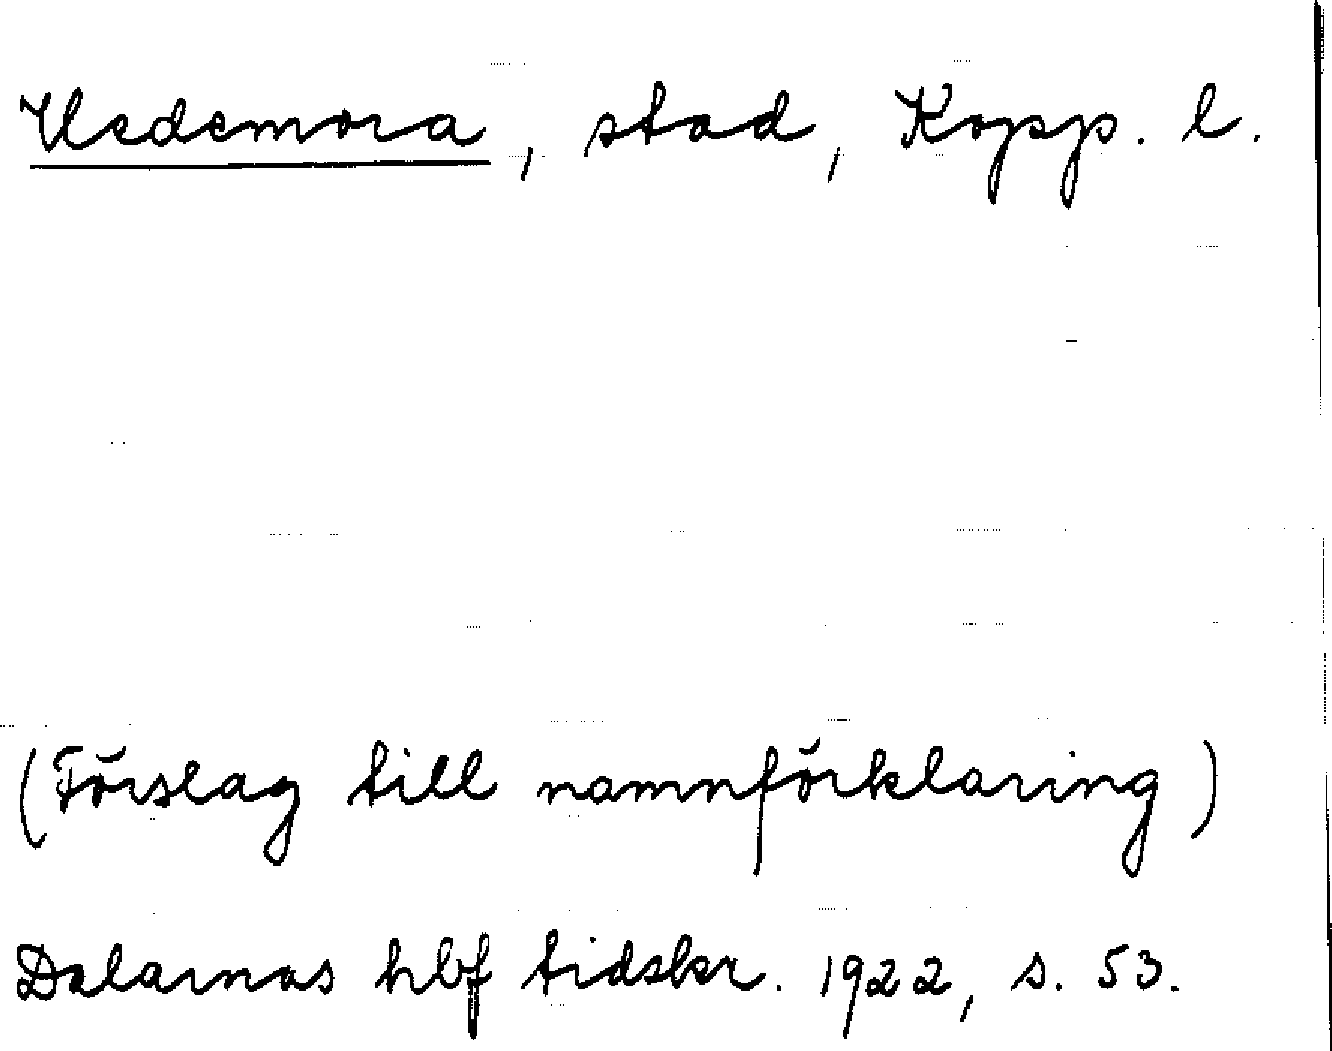 Hedemora, stad, Kopp. l.
(Förslag till namnförklaring)
Dalarnas hbf tidskr. 1922, s. 53.